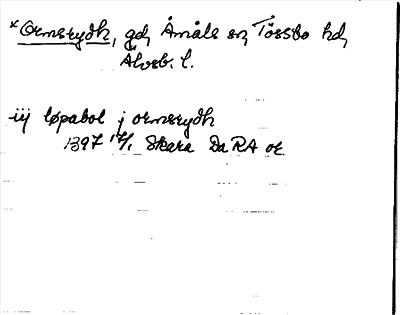 *Ormsrydh, gd, Åmåls sn, Tössbo hd,
Älvsb. l.
iij løpabol j ormsrydh
1397 17/1 Skara Da RA or.